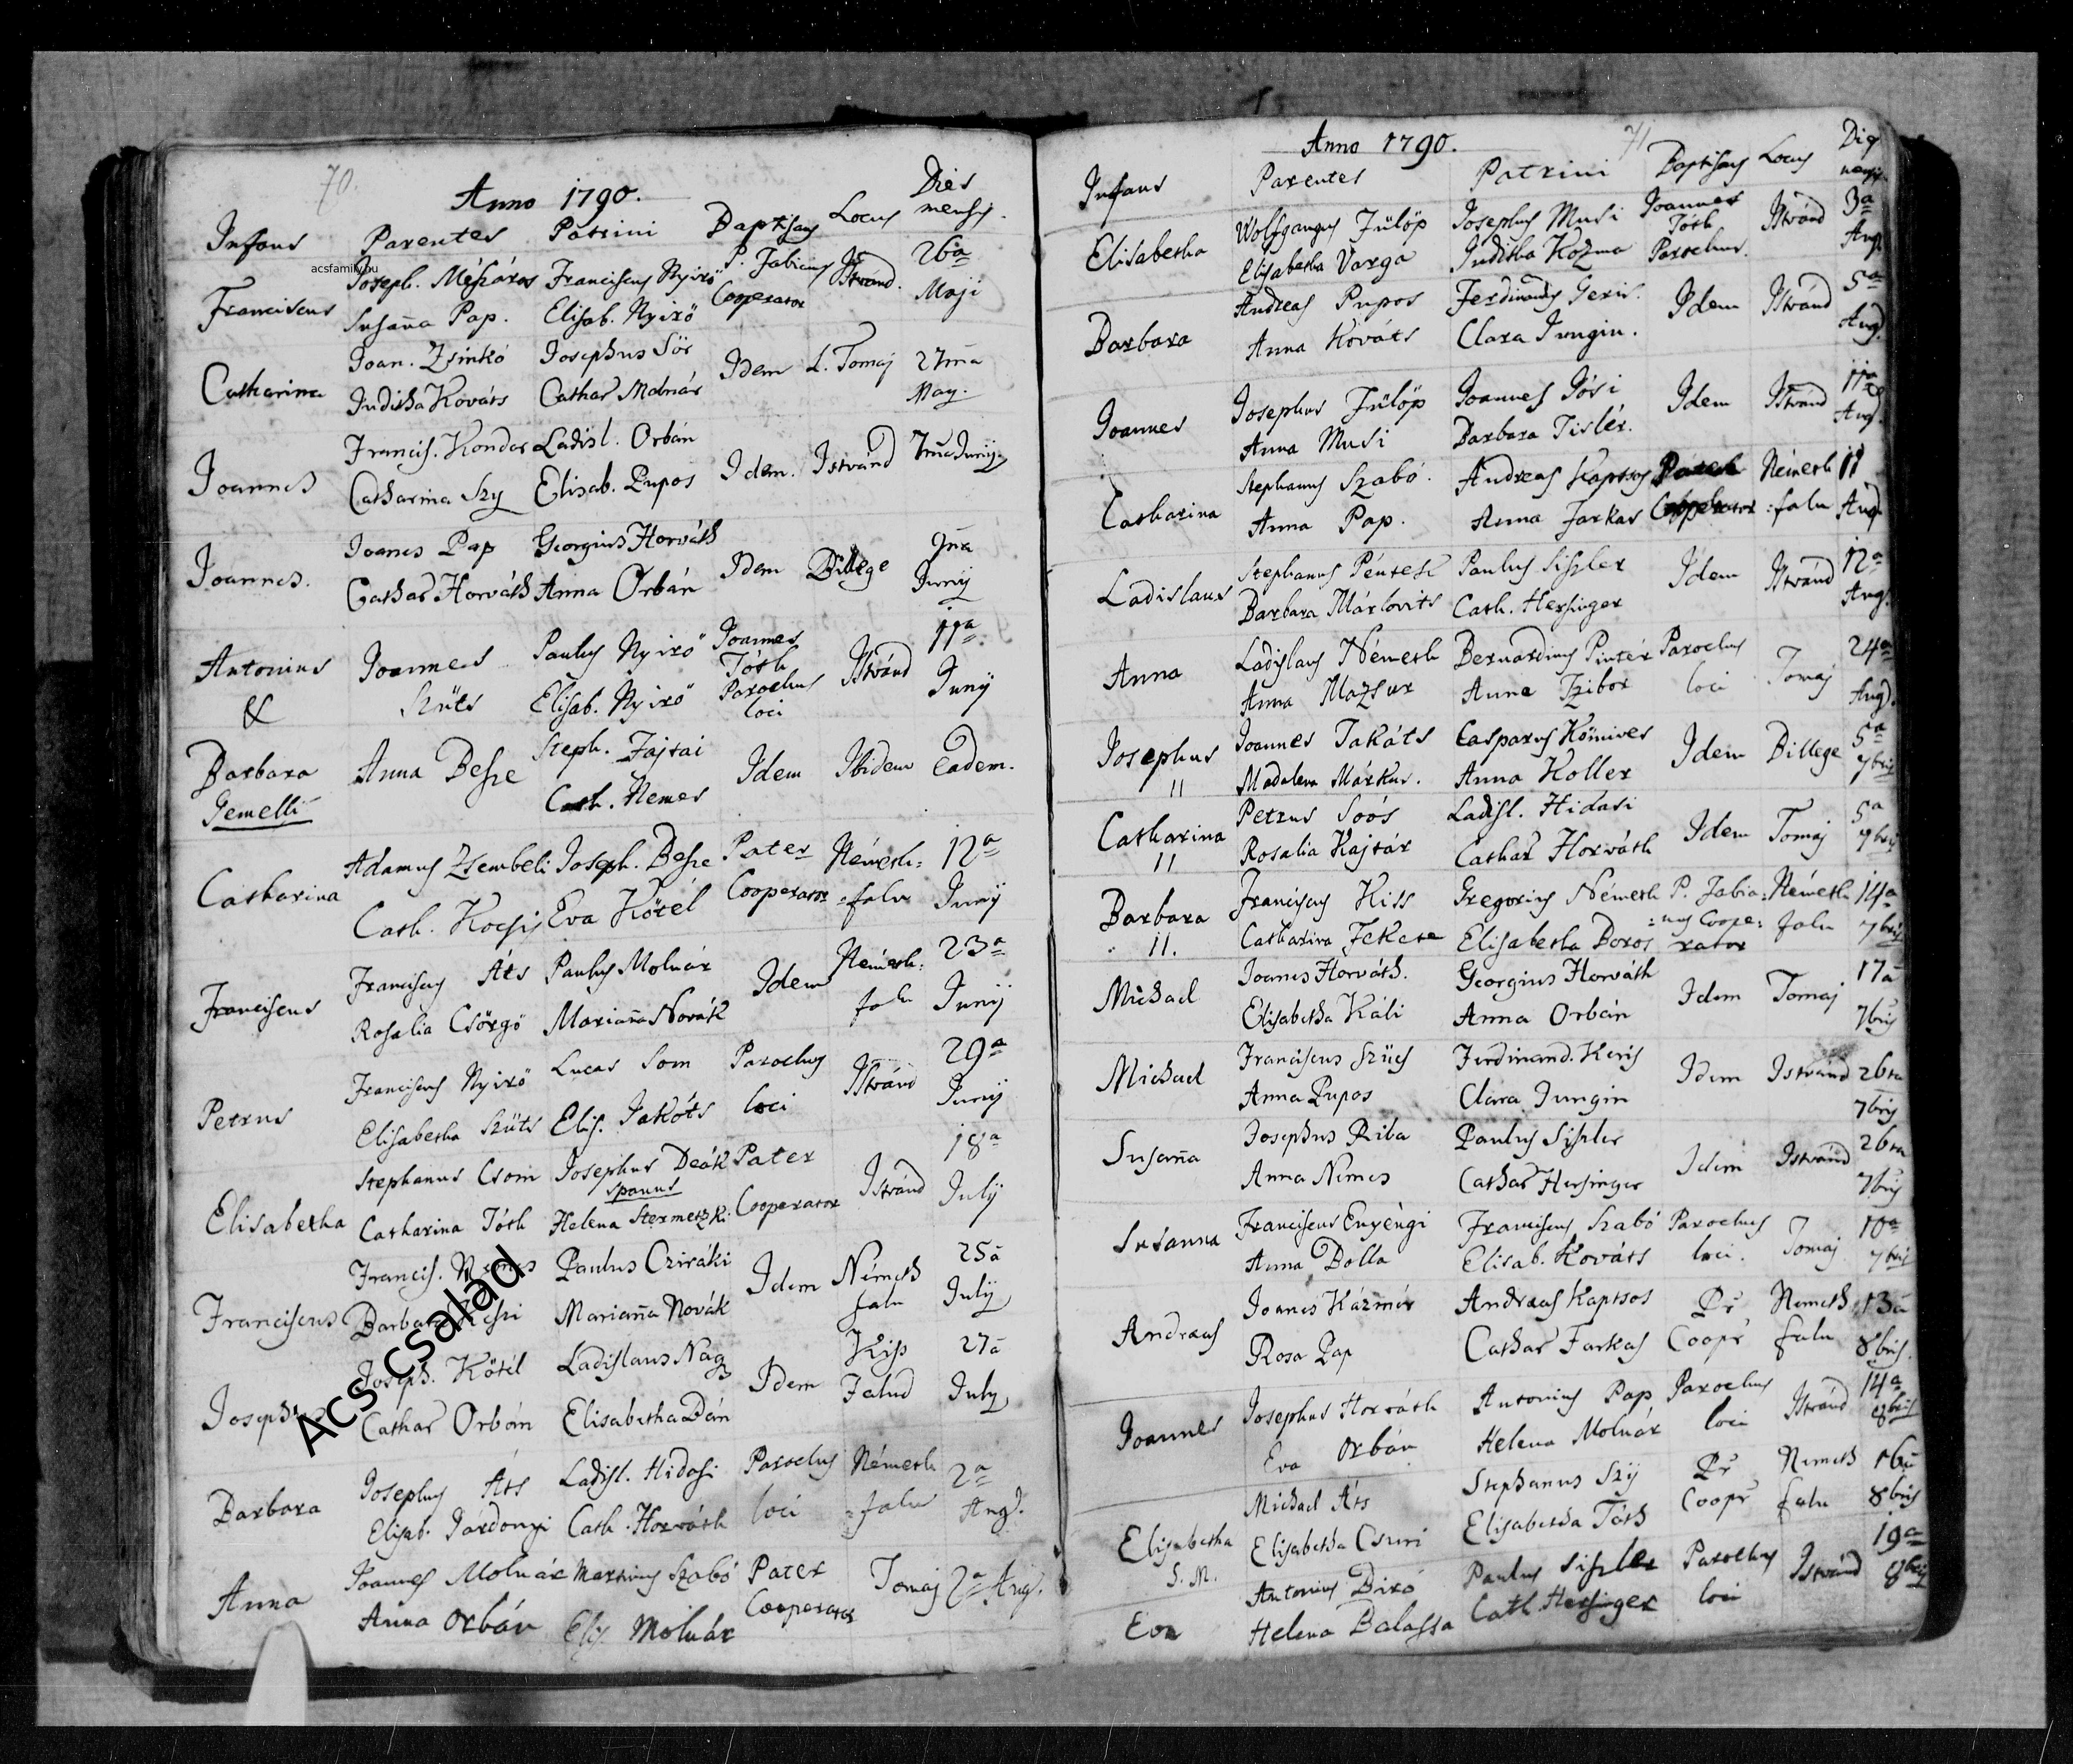 70.
Anno 1790.
Dies
Infans Parentes Patrini Baptisans Locus mensis.
acsfamily.hu
Joseph. Mészáros Franciscus Nyirö P. Fabianus Istvánd. 26a
Franciscus Susaña Pap. Elisab. Nyirö Cooperator Maji
Joan. Zsinkó Josephus Sör Idem L. Tomaj 27ma
Catharina Juditha Kováts Cathar Molnár May.
Francis. Kondor Ladisl. Orbán
Joannes Catharina Szy Elisab. Pupos Idem. Istvánd 7ma Junij
Joanes Pap Georgius Horváth 9na
Joannes. Cathar Horváth Anna Orbán Idem Billege Junij
Antonius Joannes Paulus Nyirö Joannes Istvánd 11a
& Szüts Elisab. Nyirö Tóth Junij
Parochus
loci
Barbara Anna Besze Steph. Zajtai Idem Ibidem Eadem.
Gemelli Cath. Nemes
Adamus Zsembeli Joseph. Besze Pater Németh= 12a
Catharina Cath. Kocsis Eva Kötél Cooperator =falu Junij
Franciscus Áts Paulus Molnár Németh= 23a
Franciscus Rosalia Csörgö Mariaña Novák Idem falu Junij
Franciscus Nyirö Lucas Som Parochus Istvánd 29a
Petrus Elisabetha Szüts Elis. Takáts loci Junij
Stephanus Csom Josephus Deák Pater 18a
spanus
Elisabetha Catharina Tóth Helena Stermetzki Cooperator Istvánd Julij
Francis. Nemes Paulus Cziráki Idem Németh 25a
Franciscus Barbara Mariaña Novák falu Julij
Joseph. Kötél Ladislaus Nagy Idem Kiss 27a
Joseph Cathar Orbán Elisabetha Dán Falud July
Acs család
Josephus Áts Ladisl. Hidasi Parochus Németh 2a
Barbara Elisab. Járdonyi Cath. Horváth loci =falu Aug.
Joannes Molnár Martinus Szabó Pater Tomaj 2a Aug.
Anna Anna Orbán Elis. Molnár Cooperator
71
Anno 1790.
Infans Parentes Patrini Baptisans Locus Dies
mensis
Wolfgangus Fülöp Josephus Musi Joannes Istvánd 3a
Tóth
Elisabetha Elisabetha Varga Juditha Kozma Parochus. Aug.
Andreas Pupos Ferdinandus Idem Istvánd 5a
Barbara Anna Kováts Clara Jungin. Aug.
Josephus Fülöp Joannes Jósi Idem Istvánd 11a
Joannes Anna Musi Barbara Tislér. Aug.
Stephanus Szabó. Andreas Kaptsos Pater Németh 11
Catharina Anna Pap. Anna Farkas Cooperator =falu Aug
Stephanus Péntek Paulus Siszler Idem Istvánd 12a
Ladislaus Barbara Márlovits Cath. Hersinger Aug.
Ladislaus Németh Bernardinus Pintér Parochus Tomaj 24a
Anna Anna Mazsur Anna Tzibor loci Aug.
Josephus Joannes Takáts Casparus Kömives Idem Billege 5a
11 Madalena Márkus. Anna Koller 7bris
Catharina Petrus Soós Ladisl. Hidasi Idem Tomaj 5a
11 Rosalia Kajtár Cathar Horváth 7bris
Barbara Franciscus Kiss Gregorius Németh P. Fabia= Németh 14a
=nus Coope=
11. Catharina Fekete Elisabetha Boros rator falu 7bris
Michael Joanes Horváth. Georgius Horváth Idem Tomaj 17a
Elisabetha Káli Anna Orbán 7bris
Michael Franciscus Szücs Ferdinand. Keris Idem Istvánd 26ta
Anna Pupos Clara Jungin 7bris
Susaña Josephus Riba Paulus Siszler Idem Istvánd 26ta
Anna Nemes Cathar Hersinger 7bris
Susanna Franciscus Enyéngi Franciscus Szabó Parochus Tomaj 10a
Anna Bolla Elisab. Kováts loci. 7bris
Andreas Joanes Kázmér Andreas Kaptsos Pr Nemeth 13a
Rosa Pap Cathar Farkas Coopr falu 8bris.
Joannes Josephus Horváth Antonius Pap Parochus Istvánd 14a
Eva Orbán Helena Molnár loci 8bris
Michael Áts Stephanus Szÿ Pr Nemeth 16a
Elisabetha Elisabetha Csuri Elisabetha Tóth Coopr falu 8bris
S. M.
Antonius Biró Paulus Siszler Parochus Istvánd 19a
Eva Helena Balassa Cath. Hersinger loci 8bris